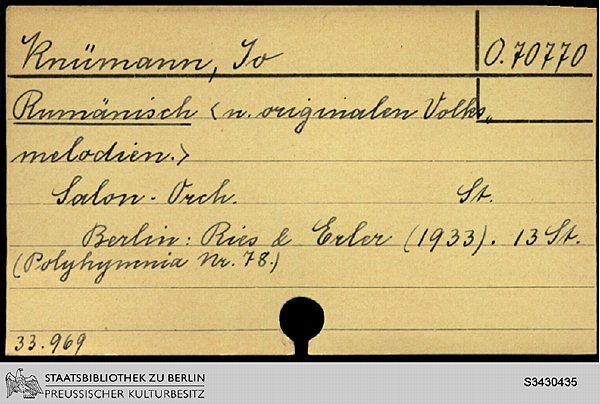 Knümann, Jo
O. 70770
Rumänisch <n. originalen Volks„
melodien.>
Salon-Orch. St.
Berlin: Ries & Erler (1933). 13 St.
(Polyhymnia Nr. 78.)
33.969
STAATSBIBLIOTHEK ZU BERLIN
PREUSSISCHER KULTURBESITZ
S3430435